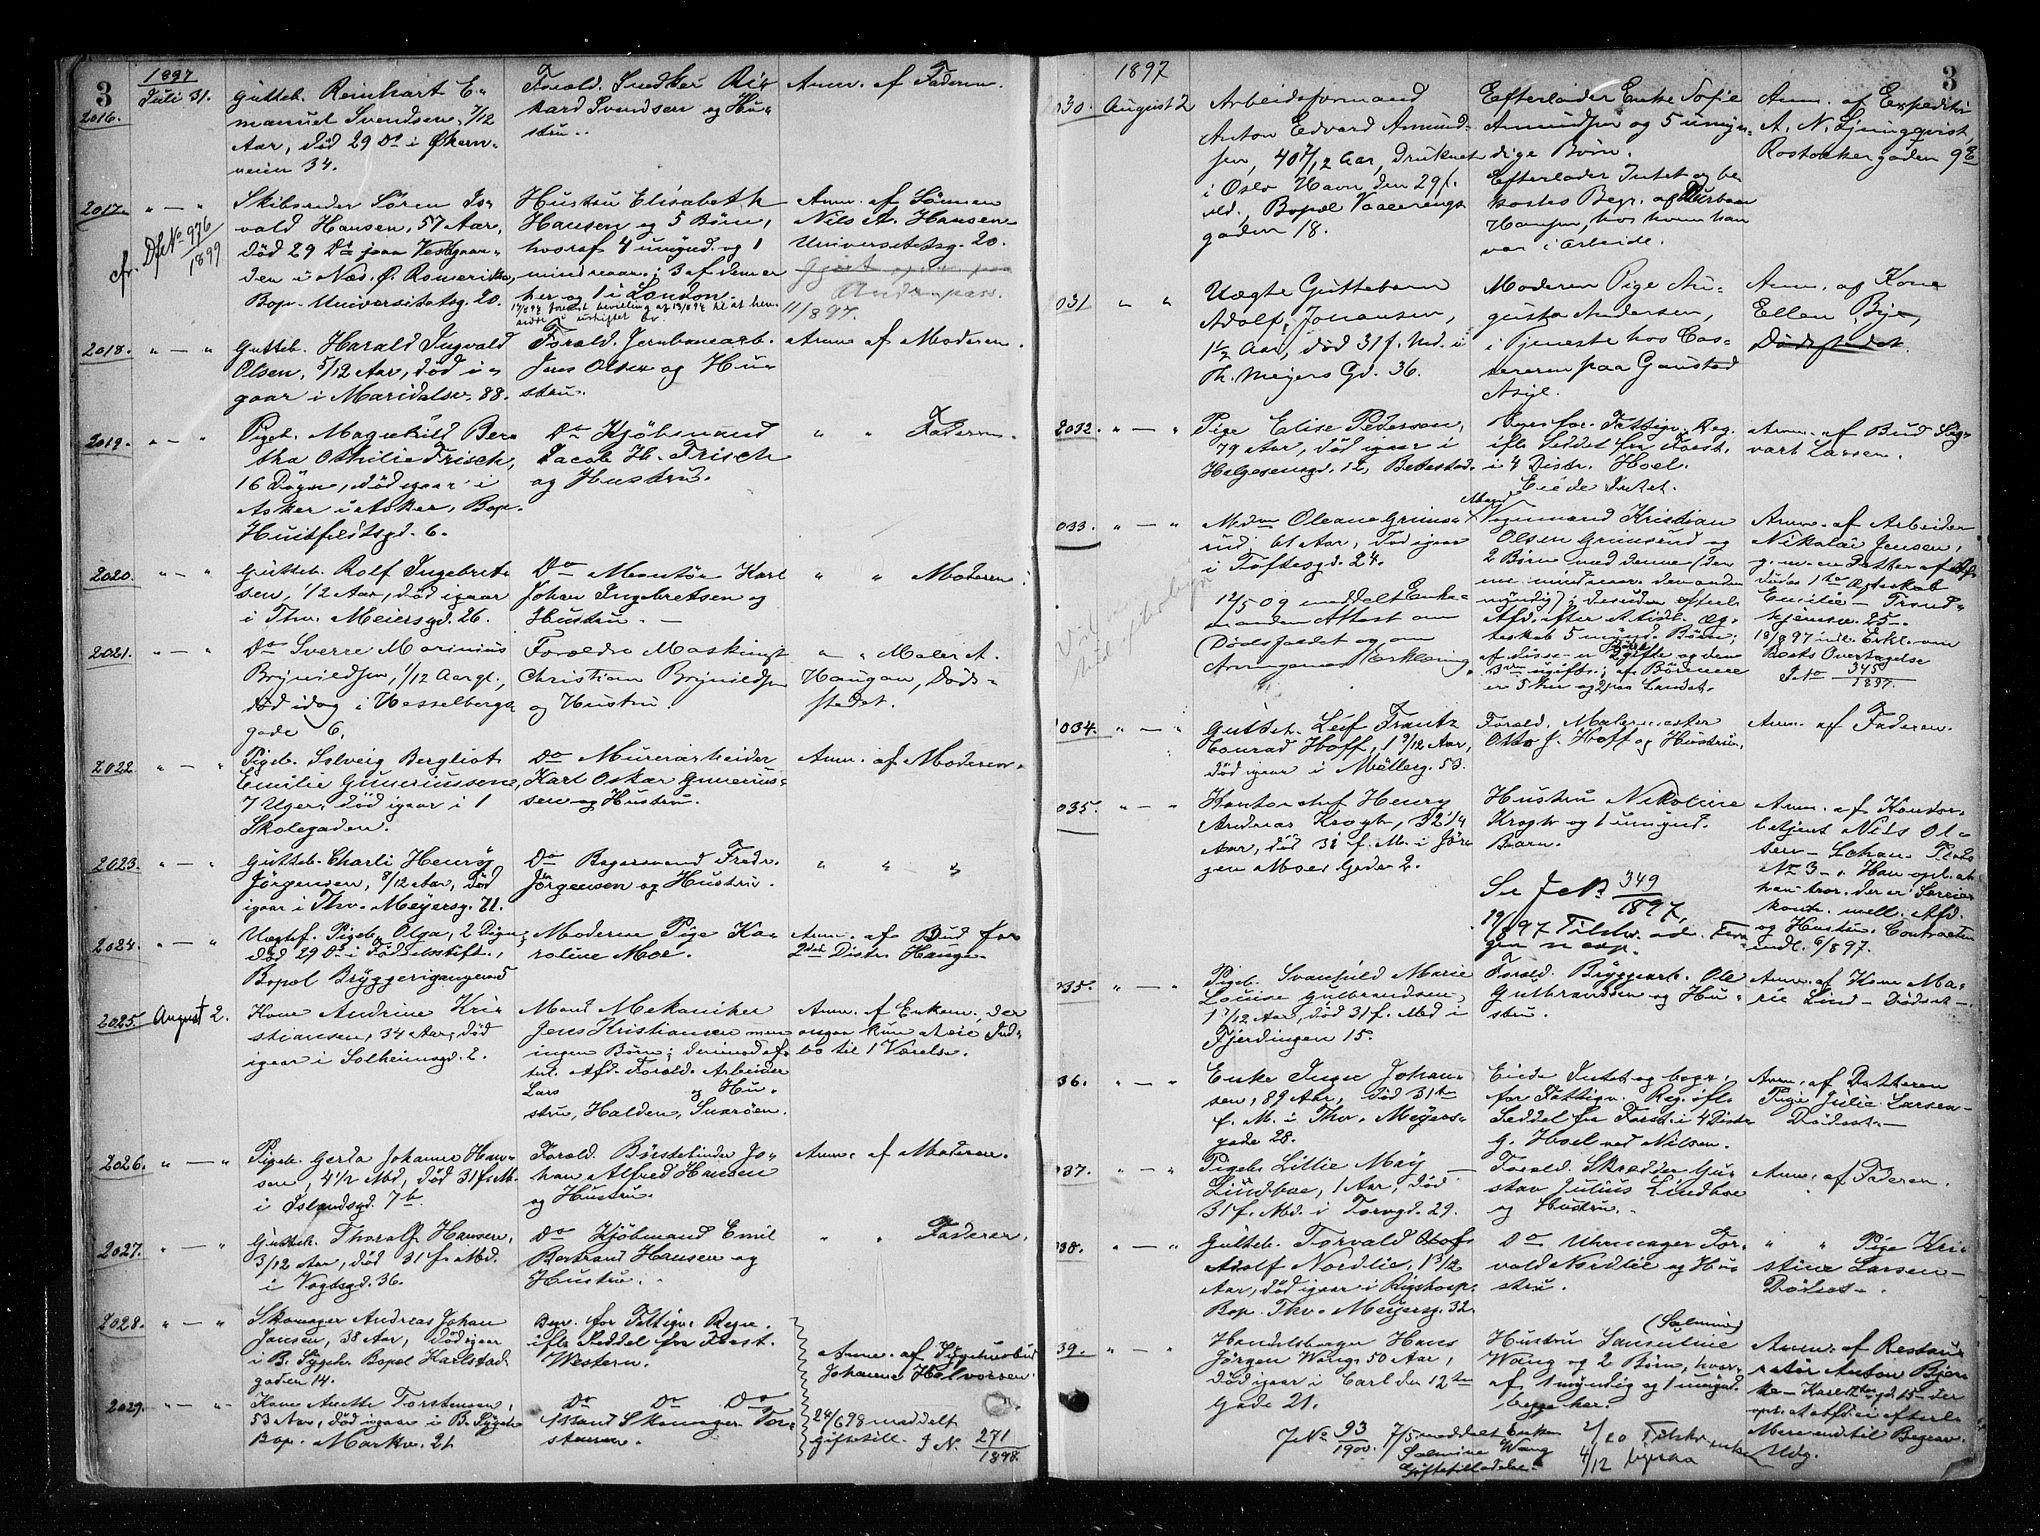 3
1897
2016.
Juli 31.
Gutteb. Reinhart E-
manuel Svendsen, 7/12
Aar, død 29 Ds i Økern-
veien 34.
Forald. Snedker Ri-
kard Svendsen og Hu-
stru.
Anm. af Faderen.
2017.
" — "
cfr. Df. No 976/1899
Skibsreder Søren
vald Hansen, 57 Aar,
død 29 Ds paa Vestgaar-
den i Næs. Ø. Romerike,
Bop. Universitetsg. 20.
Hustru Elisabeth
Hansen og 5 Børn,
hvoraf 4 umynd. og 1
mindreaar.; 3 af dem er
her og 1 i London.
Anm. af Sønnen
Nils A. Hansen
Universitetsg. 20.
11/8 97.
2018.
" — "
Gutteb. Harald Ingvald
Olsen, 5/12 Aar, død i-
gaar i Maridalsv. 88.
Forald. Jernbanearb.
Jens Olsen og Hu-
stru.
Anm. af Moderen.
2019.
" — "
Pigeb. Magnhild Ber-
tha Othilie Frisch,
16 Døgn, død igaar i
Asker i Asker, Bop.
Huitfeldtsgd. 6.
Do Kjøbmand
Jacob H. Frisch
og Hustru.
" " Faderen.
2020.
" — "
Gutteb. Rolf Ingebret-
sen, 1/12 Aar, død igaar
i Thv. Meiersgd. 26.
Do Montør Karl
Johan Ingebretsen og
Hustru. —
" " Moderen.
2021.
" — "
Do Sverre Marinius
Brynildsen, 1/12 Aar gl.,
død idag i Hesselbergs
gade 6.
Forældre Maskinist
Christian Brynildsen
og Hustru.
" " Maler A.
Haugan, Døds-
stedet.
2022
" — "
Pigeb. Solveig Bergliot
Emilie Guneriussen
7 Uger, død igaar i 1
Skolegaden.
Do Murerarbeider
Karl Oskar Gunerius-
sen og Hustru.
Anm. af Moderen.
2023.
" — "
Gutteb. Charli Henry
Jørgensen, 8/12 Aar, død
igaar i Thv. Meyersg. 71.
Do Bagersvend Fredr.
Jørgensen og Hustru.
" " "
2024.
" — "
Uægtef. Pigeb. Olga, 2 Døgn,
død 29 Ds i Fødselsstift.,
Bopæl Bryggerigangen 5
Moderen Pige Ka-
roline Moe.
Anm. af Bud for
2det Distr. Hauge.
2025.
August 2.
Kone Andrine Kri-
stiansen, 34 Aar, død
igaar i Solheimsgd. 2.
Mand Mekaniker
Jens Kristiansen men
ingen Børn; derimod ef-
terl. Afd. Forald. Arbeider
Lars og Hu-
stru, Halden,
Anm. af Enkem. der
opgav kun at eie Ind-
bo til 1 Værelse.
2026.
" — "
Pigeb. Gerda Johanne Han-
sen, 4 1/2 Md, død 31 f. M.
i Islandsgd. 7 b.
Forald. Børstebinder Jo-
han Alfred Hansen
og Hustru.
Anm. af Moderen.
2027.
" — "
Gutteb. Thoralf Hansen,
3/12 Aar, død 31 f. Md.
i Vogtsgd. 36.
Do Kjøbmand Emil
Bertrand Hansen og
Hustru.
" " Faderen.
2028.
" — "
Skomager Andreas Johan
Jansen, 38 Aar, død igaar
i B. Sygeh. Bopæl Karlstad-
gaden 14.
Begr. for Fattigv. Regn.
ifle Seddel fra Forst.
Western.
Anm. af Sygehusbud
Johannes Halvorsen.
2029.
" — "
Kone Anethe Torstensen,
53 Aar, død igaar i B. Sygeh.
Bop. Markv. 21.
Do Do Do
Mand Skomager Tor-
stensen.
24/6 98 meddelt
giftetill. J. N. 271/1898.
3
1897
030.
August 2
Arbeidsformand
Anton Edvard Amund-
sen, 40 7/12 Aar, druknet
i Oslo Havn den 29 f.
Md., Bopæl Vaalerengs
gaden 18.
Efterlader Enke Sofie
Amundsen og 5 umyn-
dige Børn.
Efterlader Intet og be-
kostes Begr. af Durban
Hansen, hos hvem han
var i Arbeide.
Anm. af Expeditr.
A. N. Ljungqvist,
Rostockergaden 9 E
031
" "
Uægte Guttebarn
Adolf Johansen,
1 1/2 Aar, død 31 f. Md. i
Th. Meyers Gd. 36.
Moderen Pige Au-
gusta Andersen,
i Tjeneste hos Cas-
sereren paa Gaustad
Asyl.
Anm. af Kone
Ellen Bye,
Dødsstedet.
2032.
" — "
Pige Elise Pedersen,
79 Aar, død igaar i
Helgesensgd. 12, Betestad.
Begr. for Fattigv. Reg.
ifle Seddel fra Forst.
i 4 Distr. Hoel.
Eiede Intet.
Anm. af Bud Sig-
vart Larsen.
033.
" — "
Mdm Oleane Grims-
rud, 61 Aar, død igaar
i Toftesgd. 24.
12/5 09 meddelt Enke-
manden Attest om
Dødsfaldet og om
Arvingernes Erklæring.
Mand
Vognmand Kristian
Olsen Grimsrud og
2 Børn med denne (den
ene mindreaar. den anden
myndig); desuden efterl.
Afd. efter et tidl. Æg-
teskab 5 mynd. Børn;
af disse er 2 gifte og den
3die ugifte; af Børnene
er 5 her og 2 paa Landet.
Anm. af Arbeider
Nikolai Jensen,
g. m. en Datter af Af-
dødes 1ste Ægteskab
Emilie — Trond-
hjemsv. 25 —
18/8 97 indl. Erkl. om
Boets Overtagelse
J. No 345/1897.
1034.
" — "
Gutteb. Leif Frantz
Conrad Hoff, 1 9/12 Aar,
død igaar i Møllerg. 53.
Forald. Malermester
Otto J. Hoff og Hustru.
Anm. af Faderen.
035.
" — "
Kontorchef Henry
Andreas Krogh, 32 1/4
Aar, død 31 f. M. i Jør-
gen Moes Gade 2.
Hustru Nikoline
Krogh og 1 umynd.
Barn.
Se J. No 349/1897,
Anm. af Kontor-
betjent Nils Ol-
sen — Schan. Plads
No 3 —
og Hustru.
indl. 6/8 97.
035.
" — "
Pigeb. Svanhild Marie
Louise Gulbrandsen,
1 7/12 Aar, død 31 f. Md i
Fjerdingen 15.
Forald. Bryggearb. Ole
Gulbrandsen og Hu-
stru.
Anm. af Kone Ma-
rie Lind — Dødsst.—
36.
" — "
Enke Inger Johan-
sen, 89 Aar, død 31te
f. M. i Thv. Meyers-
gade 28.
Eiede Intet og begr.
for Fattigv. Reg. ifle.
Seddel fra Forst. i 4 Distr.
g. Hoel ved Nilsen.
Anm. af Datteren
Pige Julie Larsen —
Dødsst.—
037.
" — "
Pigeb. Lillie May
Lindboe, 1 Aar, død
31 f. Md. i Torvgd. 29.
Forald. Skrædder Gu-
stav Julius Lindboe
og Hustru.
Anm. af Faderen.
038.
" — "
Gutteb. Torvald Olof
Adolf Nordlie, 1 3/12
Aar, død igaar i Rigshosp.
Bop. Thv. Meyersg. 32.
Do Uhrmager Tor-
vald Nordlie og Hus-
tru.
" " Pige Kri-
stine Larsen —
Dødsst.—
39.
" — "
Handelsborger Hans
Jørgen Wang, 50 Aar,
død igaar i Carl den 12tes
Gade 21.
(Salmine)
Hustru
Wang og 2 Børn, hvor-
af 1 myndig og 1 umynd.
begge her.
Anm. af Restau-
ratør Anton Bjer-
ke — Karl 12tes gd. 15 — der
opl. at Afd. ei efterl.
Mere end til Begrav.
Udg.
J. No 93/1900. 7/5 meddelt Enken
Salmine Wang
Giftetilladelse.